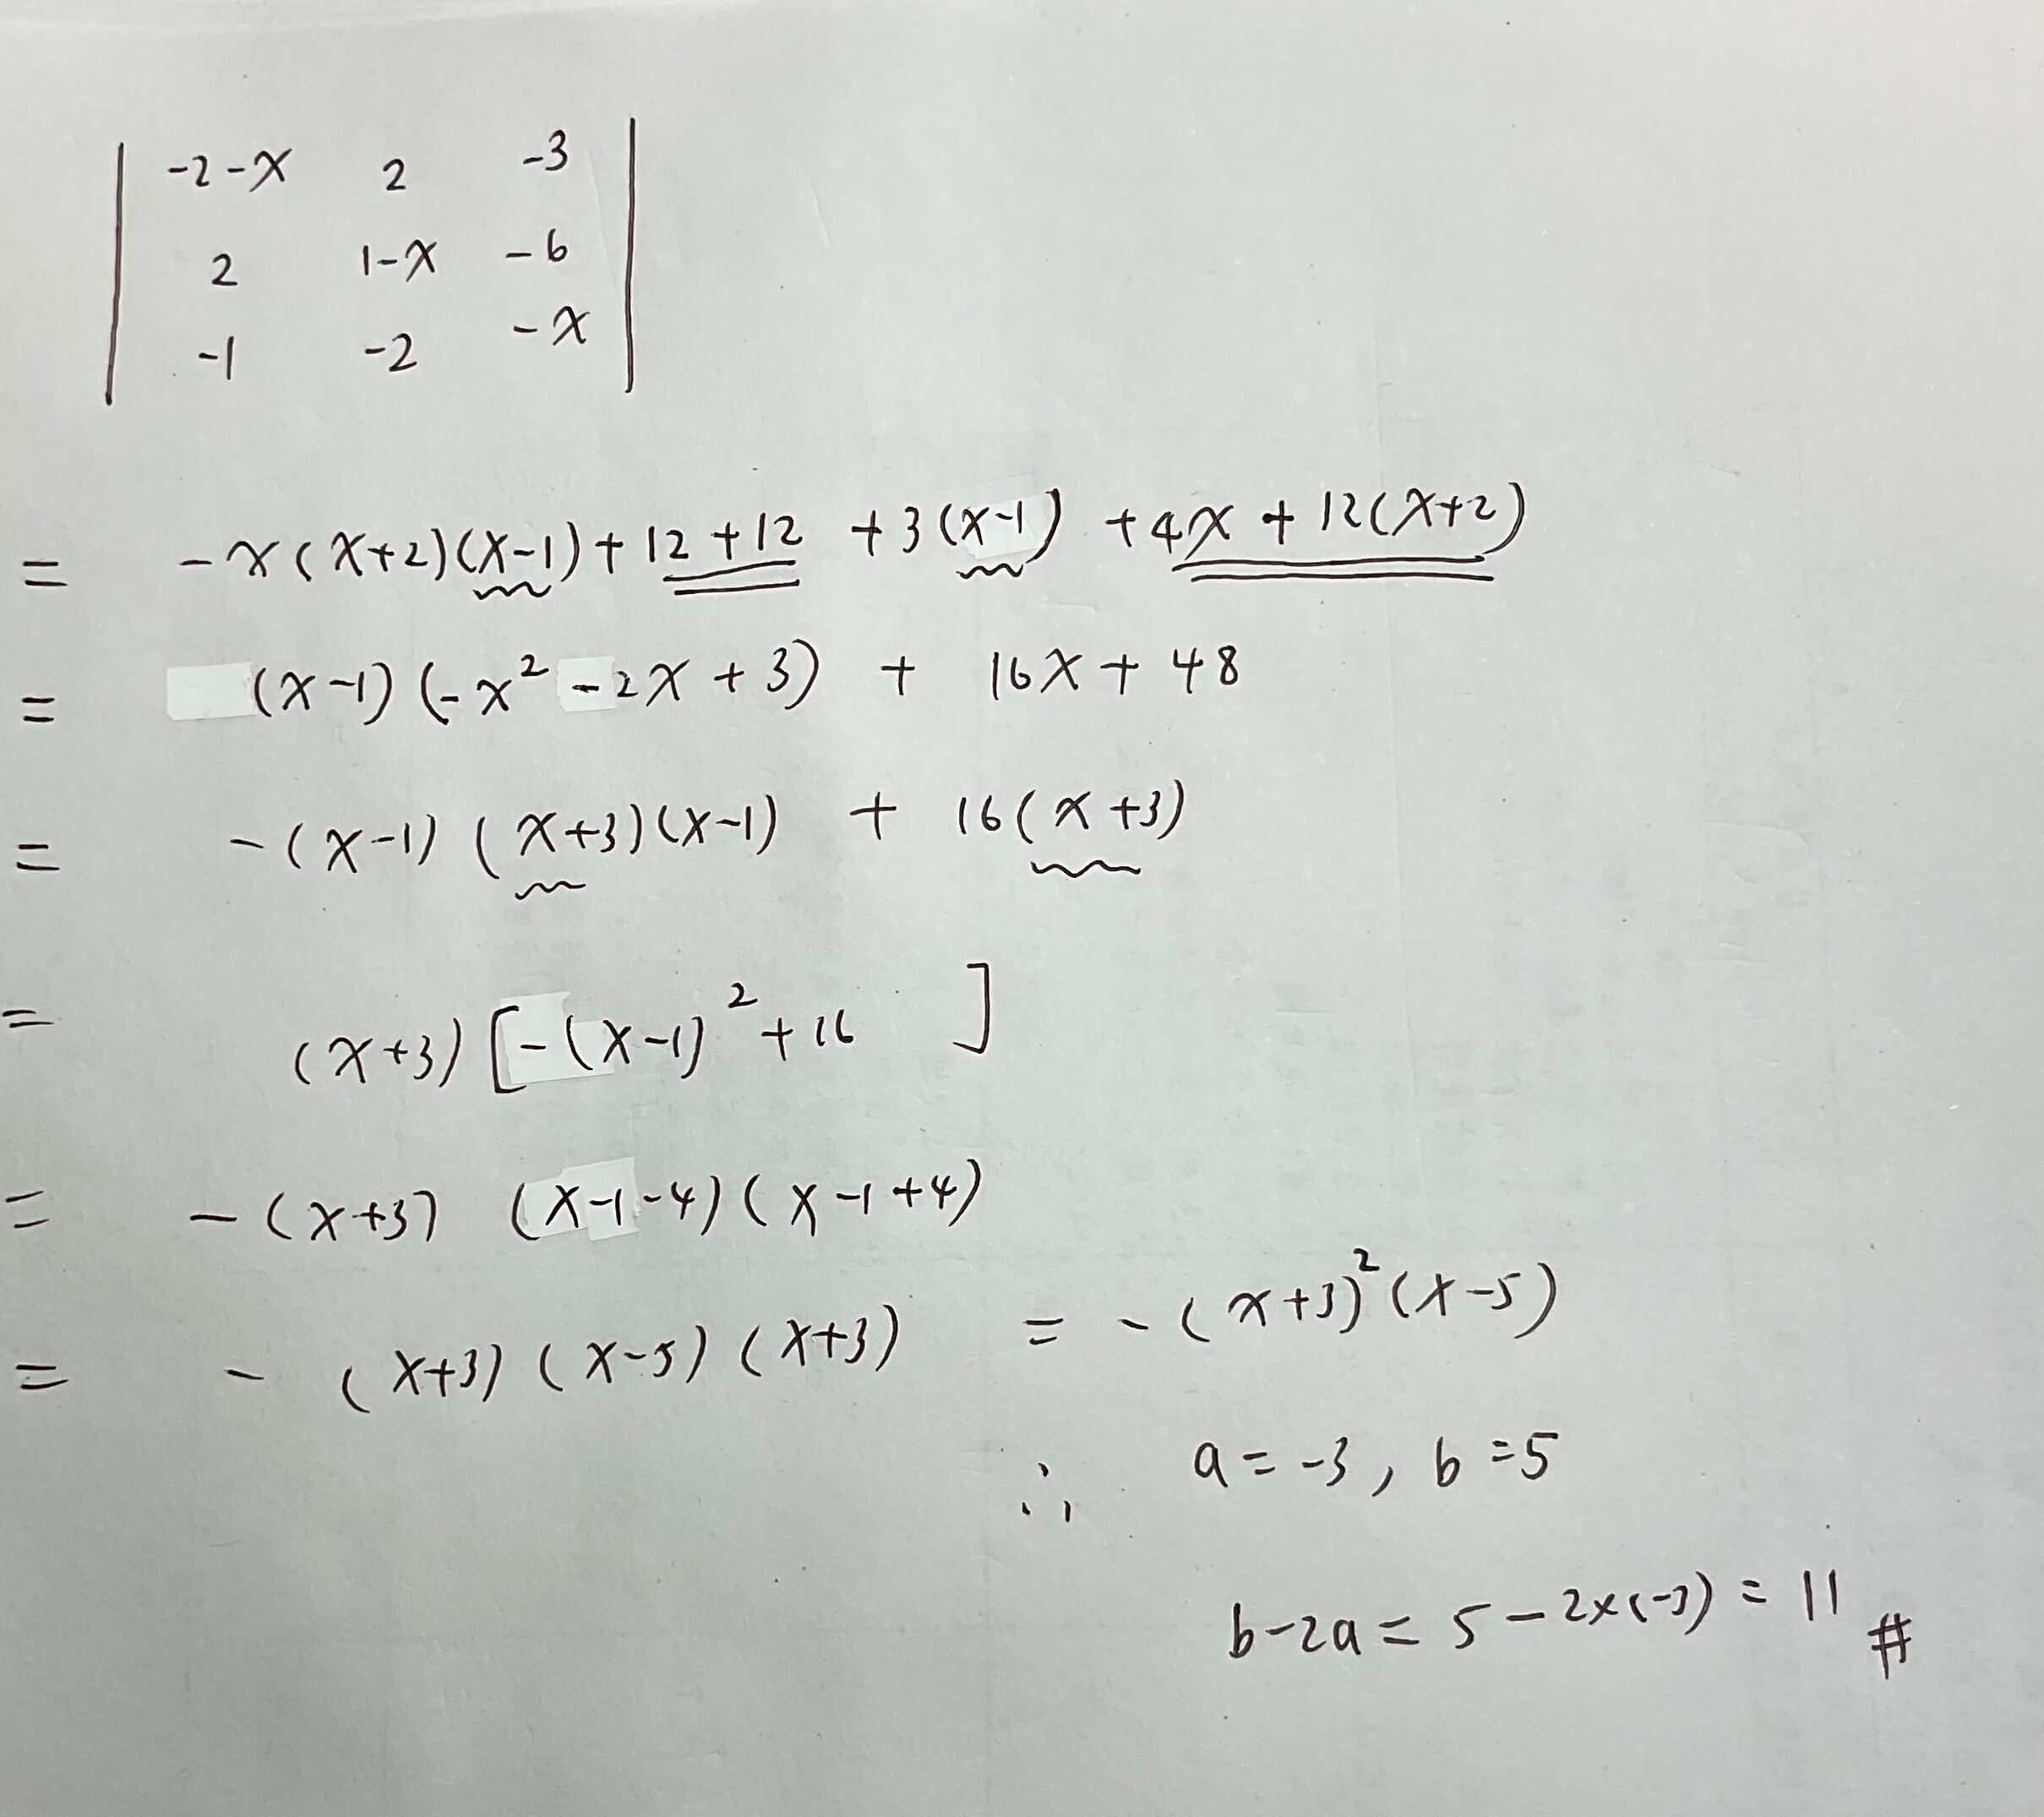 | -2-x 2 -3 |
| 2 1-x -6 |
| -1 -2 -x |
= -x(x+2)(x-1)+12+12 +3(x-1) +4x+12(x+2)
= (x-1)(-x²-2x+3) + 16x+48
= -(x-1)(x+3)(x-1) + 16(x+3)
= (x+3)[-(x-1)²+16 ]
= -(x+3) (x-1-4)(x-1+4)
= -(x+3)(x-5)(x+3) = -(x+3)²(x-5)
∴ a=-3, b=5
b-2a=5-2x(-3)=11 #